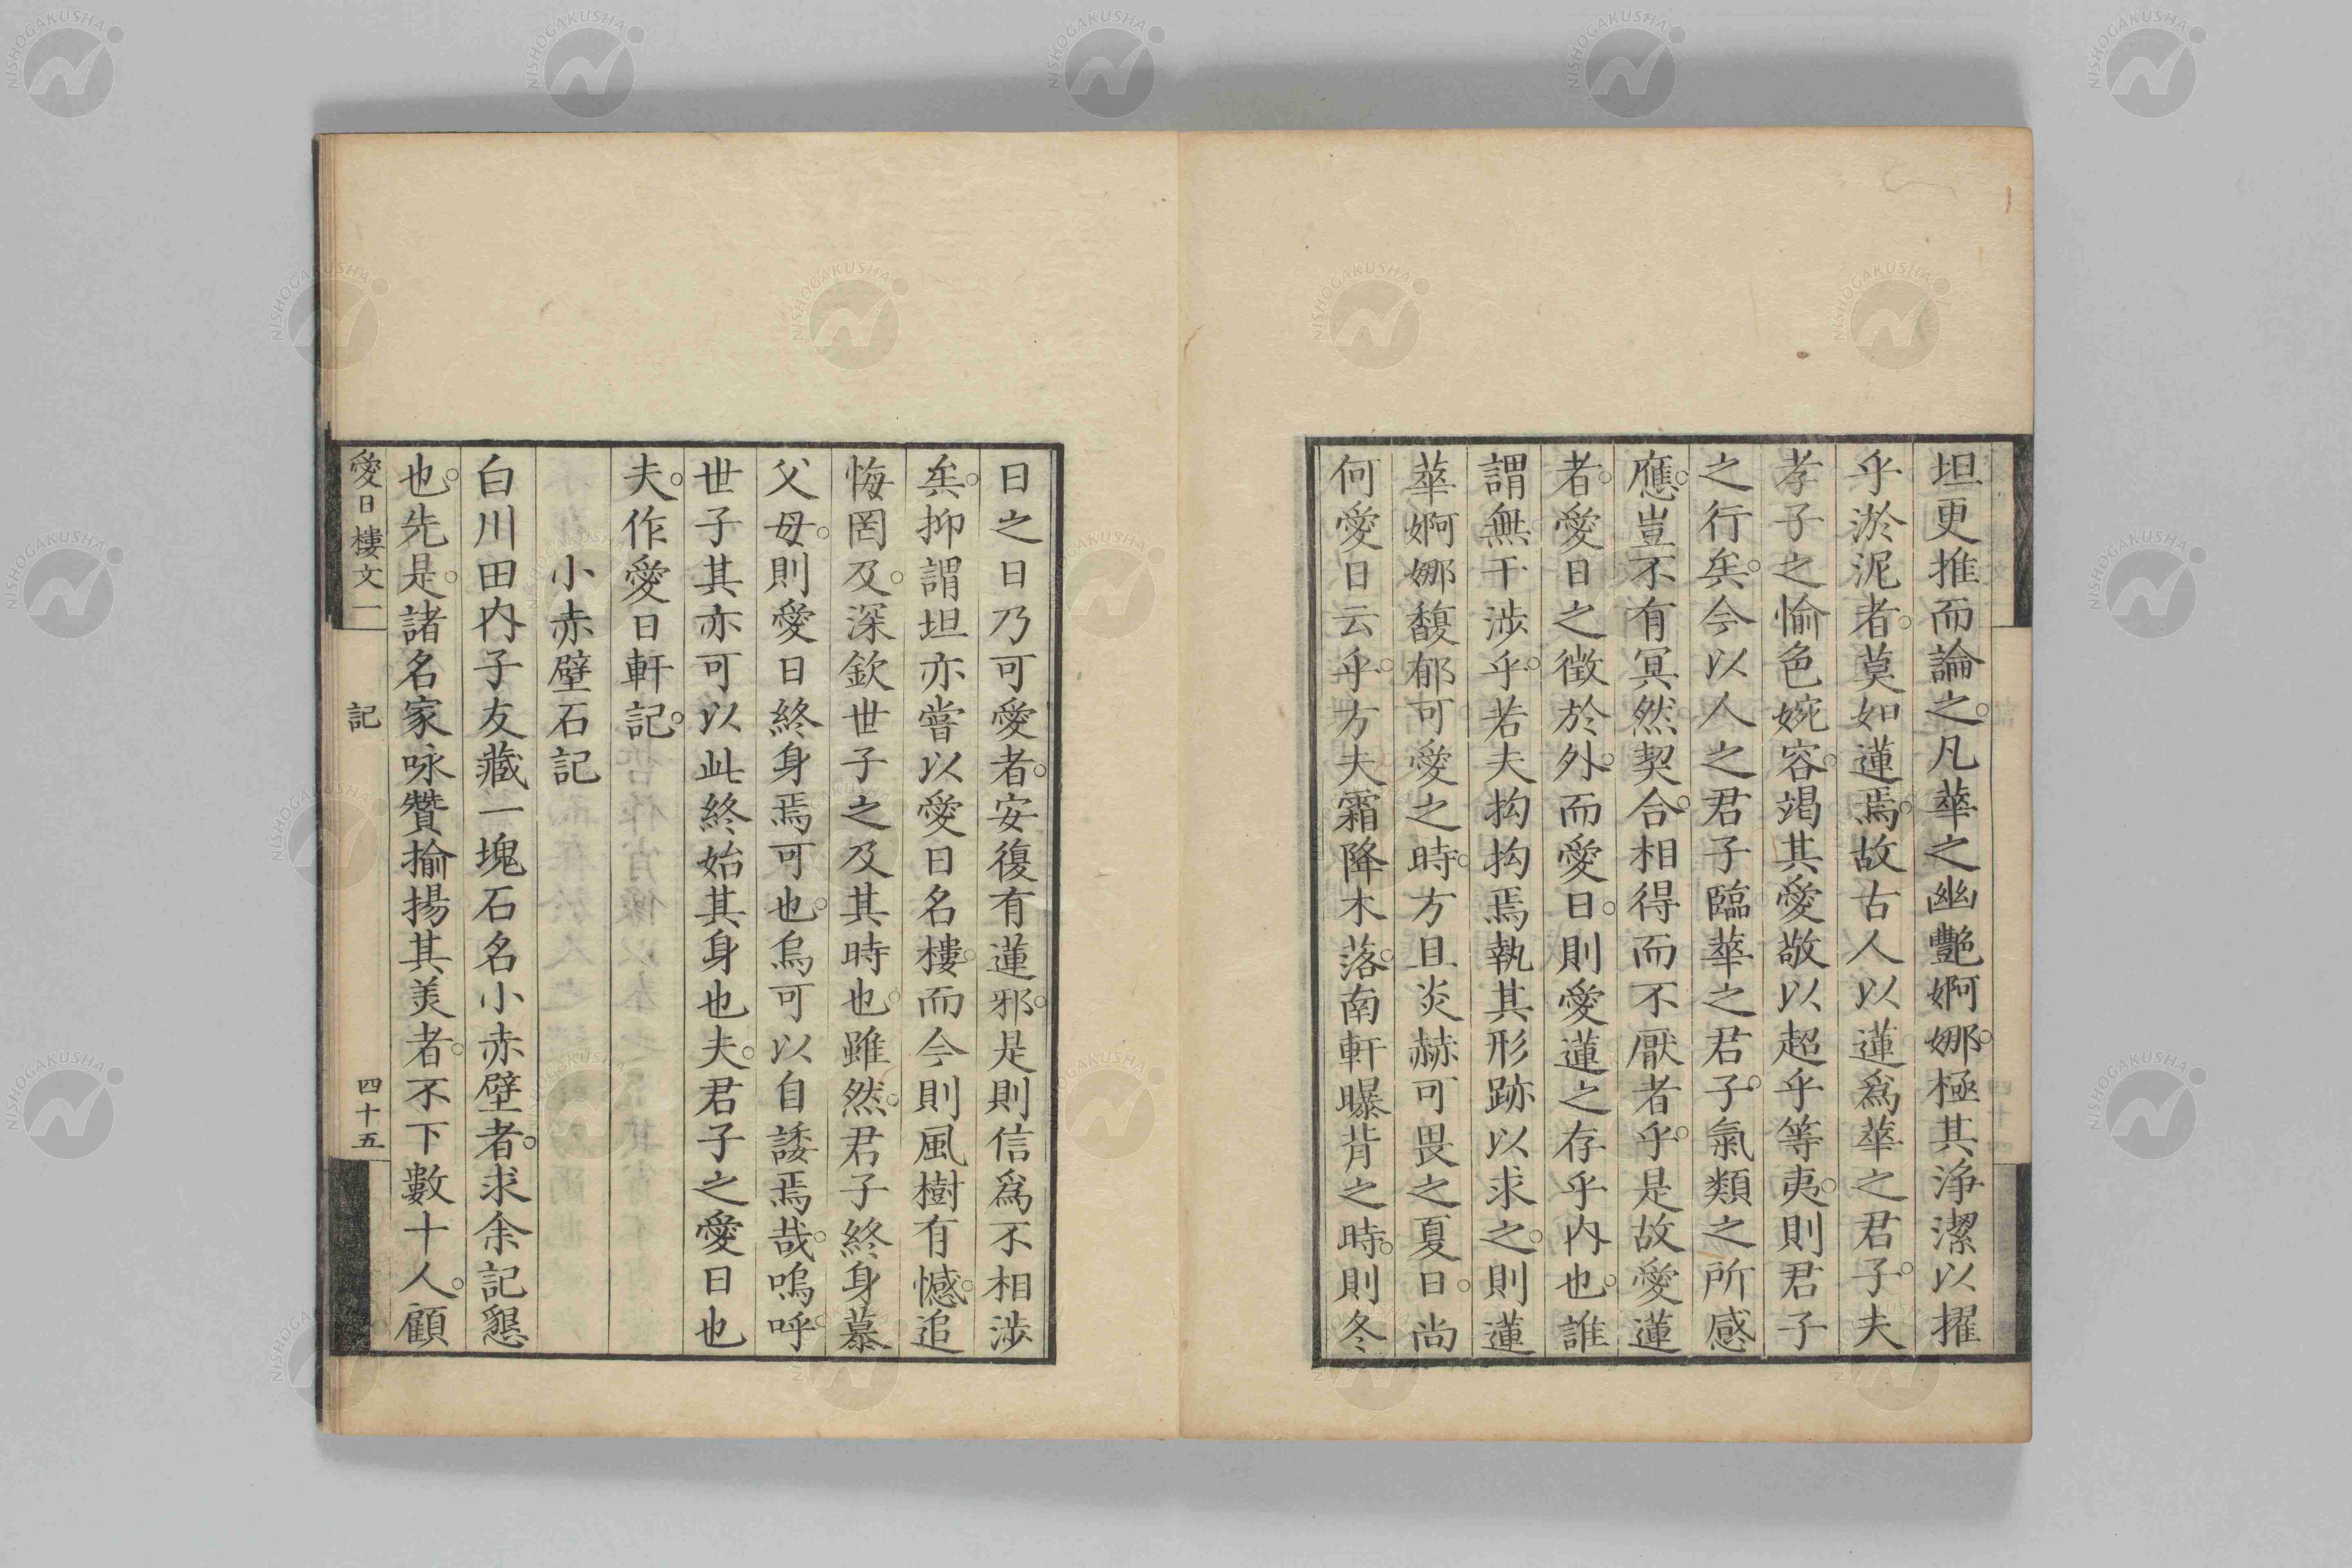 坦更推而論之。凡華之幽艷婀娜。極其淨潔以擢
乎淤泥者。莫如蓮焉。故古人以蓮爲華之君子。夫
孝子之愉色婉容。竭其愛敬以超乎等夷。則君子
之行矣。今以人之君子臨華之君子。氣類之所感
應。豈不有冥然契合。相得而不厭者乎。是故愛蓮
者。愛日之徵於外。而愛日。則愛蓮之存乎内也。誰
謂無干涉乎。若夫拘拘焉執其形跡以求之。則蓮
華婀娜馥郁可愛之時。方且炎赫可畏之夏日。尚
何愛日云乎。方夫霜降木落。南軒曝背之時。則冬
日之日乃可愛者。安復有蓮邪。是則信爲不相涉
矣。抑謂坦亦嘗以愛日名樓。而今則風樹有憾。追
悔罔及。深欽世子之及其時也。雖然。君子終身慕
父母。則愛日終身焉可也。烏可以自諉焉哉。嗚呼。
世子其亦可以此終始其身也夫。君子之愛日也
夫。作愛日軒記。
小赤壁石記
白川田内子友藏一塊石名小赤壁者。求余記懇
也。先是。諸名家咏贊揄揚其美者。不下數十人。顧
愛日樓文一 記 四十五
NISHOGAKUSHA